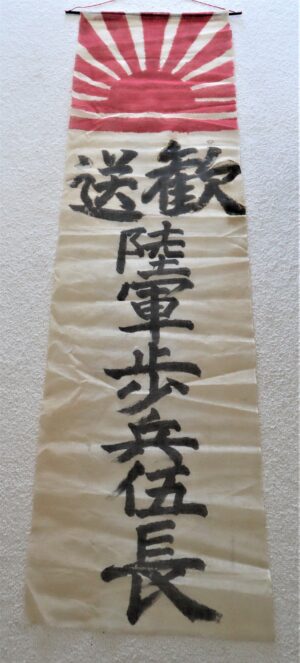 歓送
陸軍歩兵伍長